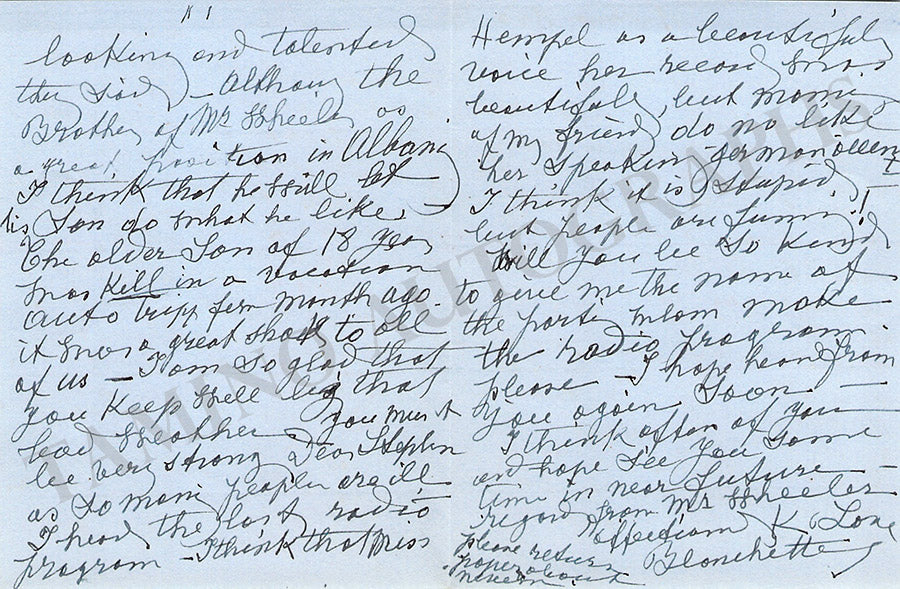 looking and talented
they said - Althoug the
Brother of Mr Wheeler as
a great position in Albani
I think that he will let
his Son do what he like -
The older Son of 18 year
was kill in a vacation
auto tripp few month ago.
it was a great shok to all
of us - I am so glad that
you keep well by that
bad weather you must
be very strong Dear Stephen
as so mani people are ill
I heard the last radio
program - I think that Miss
Hempel as a beautiful
voice her record was
beautiful, but mani
of my friend do no like
her speaking German
I think it is stupid,
but people are funni!
Will you be so kind
to give me the name of
the parti whom make
the radio program
please - I hope heard from
you again Soon -
I think often of you -
and hope see you some
time in near future -
regard from Mr Wheeler -
affection & Love
Blanchette
please return
paper
TAMINO AUTOGRAPHS